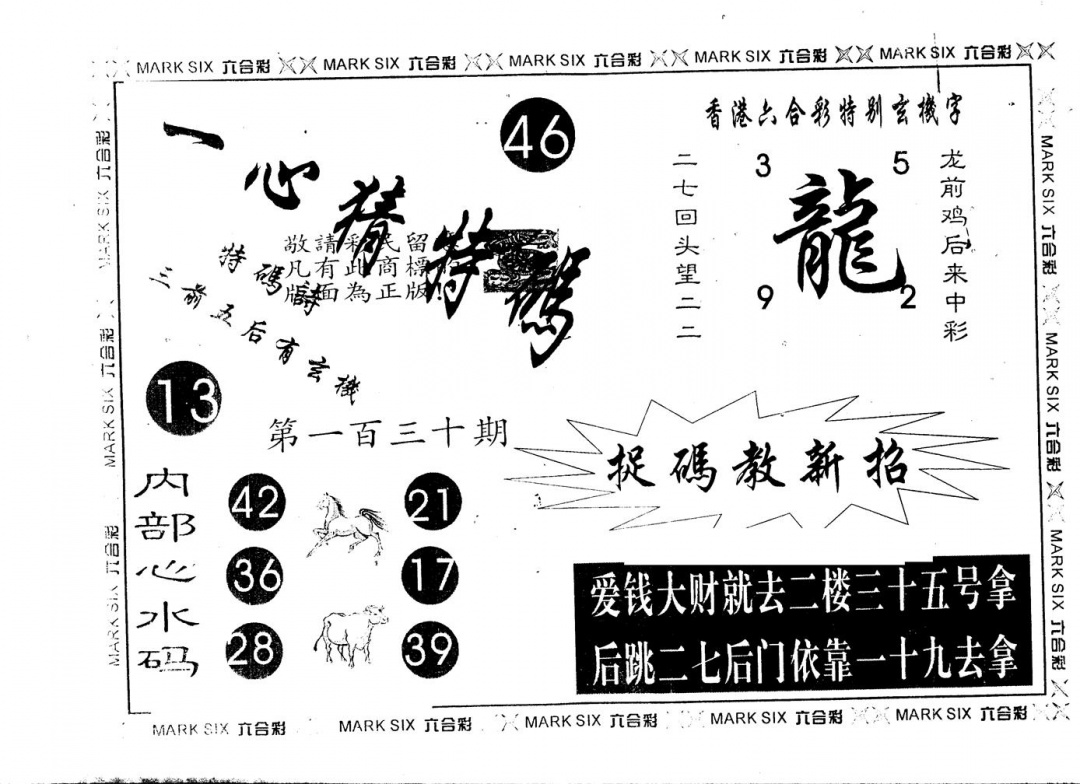 MARK SIX 六合彩 MARK SIX 六合彩 MARK SIX 六合彩 MARK SIX 六合彩 MARK SIX 六合彩
一心猜特碼
46
敬請彩民留
凡有此商標
版面為正版!
特碼詩
三前五后有玄機
13
第一百三十期
内部心水码
42
21
36
17
28
39
香港六合彩特别玄機字
二七回头望二二
3
5
龍
9
2
龙前鸡后来中彩
捉碼教新招
爱钱大财就去二楼三十五号拿
后跳二七后门依靠一十九去拿
MARK SIX 六合彩
MARK SIX 六合彩
MARK SIX 六合彩
MARK SIX 六合彩
MARK SIX 六合彩
MARK SIX 六合彩
MARK SIX 六合彩 MARK SIX 六合彩 MARK SIX 六合彩 MARK SIX 六合彩 MARK SIX 六合彩